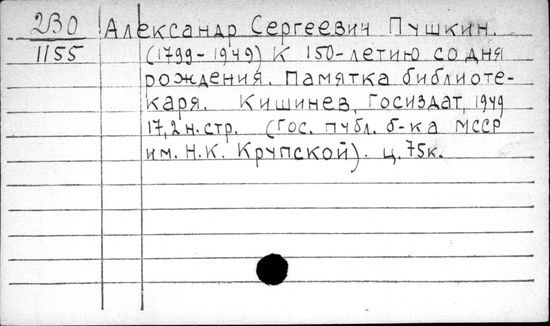 2B0 Александр Сергеевич Пушкин.
1155 (1799-1949) К 150-летию со дня
рождения. Памятка библиоте-
каря. Кишинев, Госиздат, 1949
17,2 н. стр. (Гос. публ. б-ка МССР
им. Н.К. Крупской). ц. 75к.